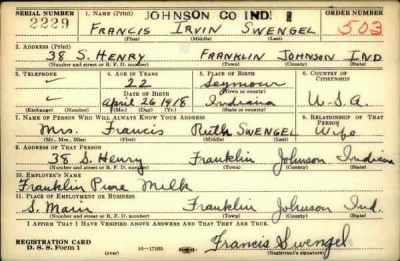 SERIAL NUMBER 1. NAME (Print) JOHNSON CO IND. 1 ORDER NUMBER
2229 FRANCIS IRVIN SWENGEL 503
(First) (Middle) (Last)
2. ADDRESS (Print)
38 S. HENRY FRANKLIN JOHNSON IND
(Number and street or R. F. D. number) (Town) (County) (State)
3. TELEPHONE 4. AGE IN YEARS 5. PLACE OF BIRTH 6. COUNTRY OF CITIZENSHIP
22 Seymour
DATE OF BIRTH (Town or county)
April 26 1918 Indiana U.S.A.
(Exchange) (Number) (Mo.) (Day) (Yr.) (State or country)
7. NAME OF PERSON WHO WILL ALWAYS KNOW YOUR ADDRESS 8. RELATIONSHIP OF THAT PERSON
Mrs. Francis Ruth SWENGEL Wife
(Mr., Mrs., Miss) (First) (Middle) (Last)
9. ADDRESS OF THAT PERSON
38 S. Henry Franklin Johnson Indiana
(Number and street or R. F. D. number) (Town) (County) (State)
10. EMPLOYER'S NAME
Franklin Pure Milk
11. PLACE OF EMPLOYMENT OR BUSINESS
S. Main Franklin Johnson Ind.
(Number and street or R. F. D. number) (Town) (County) (State)
I AFFIRM THAT I HAVE VERIFIED ABOVE ANSWERS AND THAT THEY ARE TRUE.
REGISTRATION CARD Francis Swengel
D. S. S. Form 1 (over) 16—17105 (Registrant's signature)